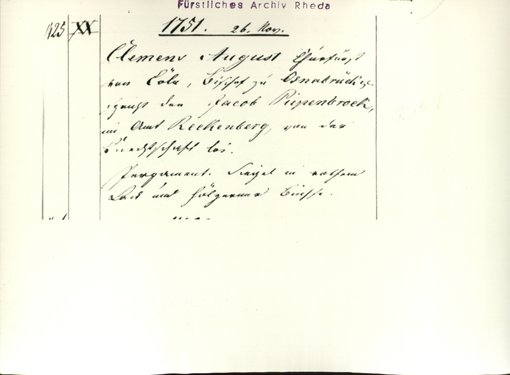 Fürstliches Archiv Rheda
1751. 26. Nov.
125 XX
Clemens August Churfürst
von Cöln, Bischof zu Osnabrück
den Jacob Piepenbrock,
im Amt Reckenberg, von der
Knechtschaft los.
Pergament. Siegel in rothem
Lack und hölzerner Büchse.